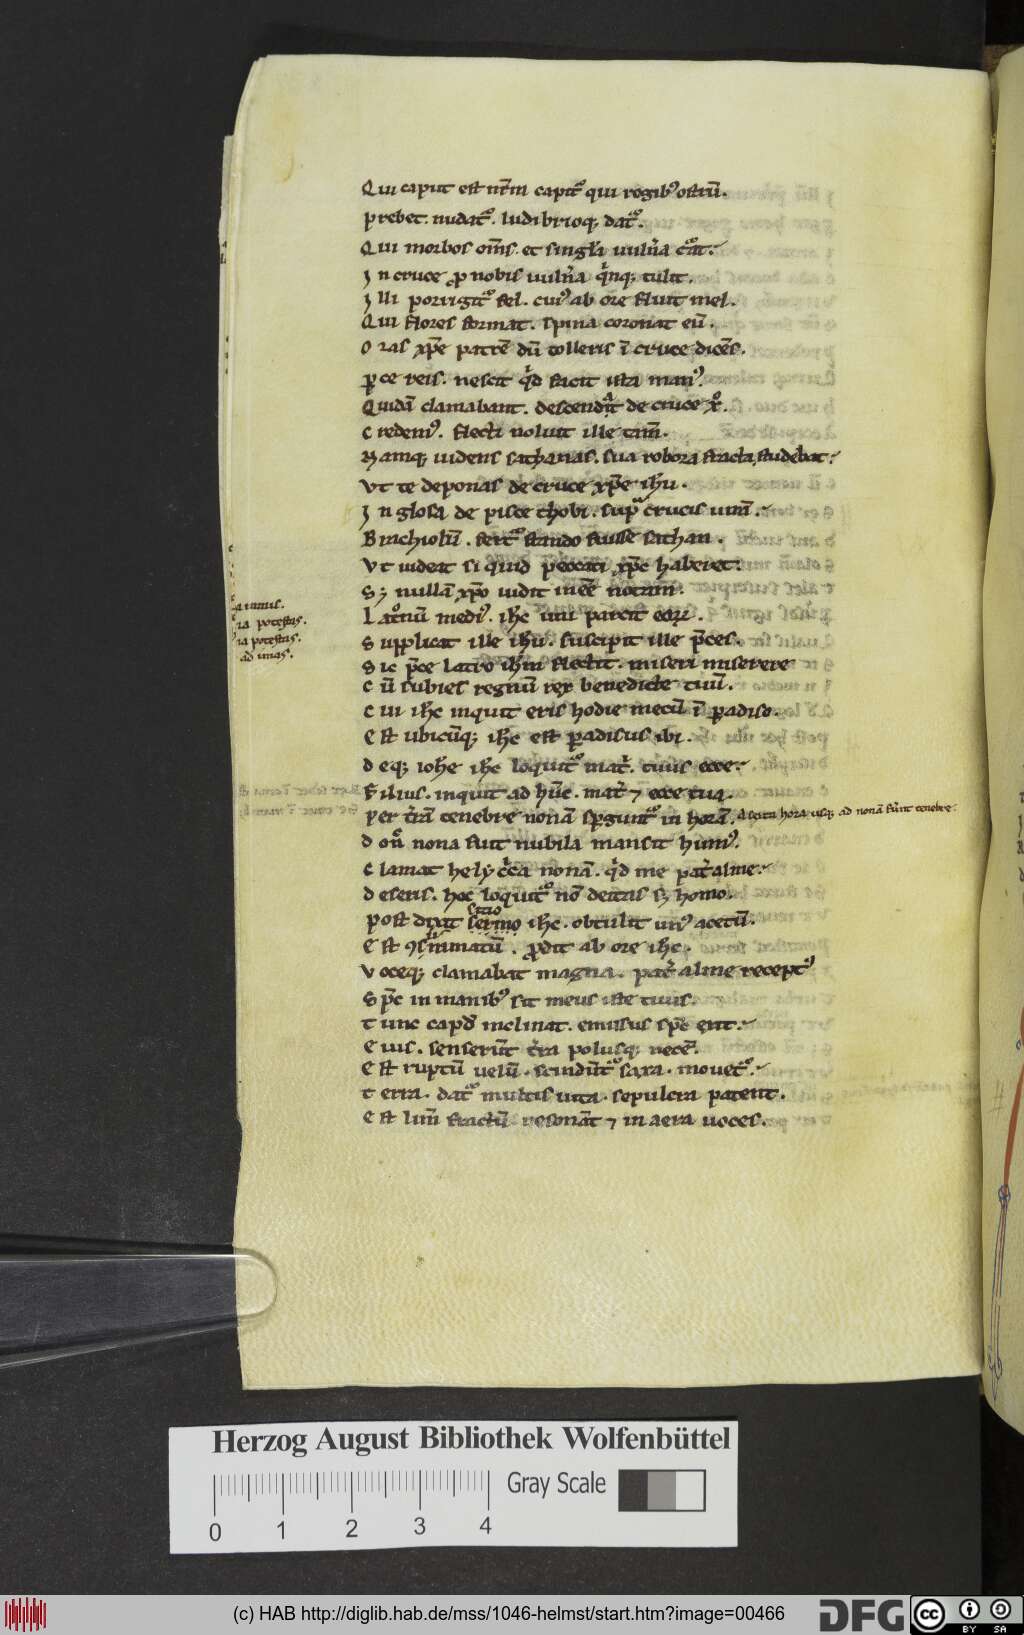 Qui caput est nr̄m capit᷑ qui regib᷒ ostrū.
Prebet. nudat᷑. ludibrioq; dat᷑.
Qui morbos om̄s. et singl̄a uuln̄a c᷑at.
Jn cruce ꝓ nobis uuln̄a qͥnq; tulit.
Jlli porrigit᷑ fel. cui᷒ ab ore fluit mel.
Qui flores format. spina coronat eū.
Oras xp̄e patrē dū tolleris ī cruce dicēs.
Ꝑce reis. nescit qͥd facit ista man᷒.
Quidā clamabant. descendat de cruce
Credem᷒. flecti noluit ille tam̄.
Namq; uidens sathanas. sua robora fracta, studebat.
Vt te deponas de cruce xp̄e ih̄u.
Jn glosa de pisce thobi. supͣ crucis unā.
Brachiolū. fert᷑ stando fuisse sathan.
Vt uideat si quid peccati xp̄c haberet.
S; nullā xp̄o uidit inēē notam.
Lat͛nū medi᷒. ih̄c uni parcit eoꝝ.
Supplicat ille ih̄u. suscipit ille p̄ces.
Sic p̄ce latro ih̄m flectit. miseri miserere
Cū subies regnū rex benedicte tuū.
Cui ih̄c inquit eris hodie mecū ī ꝑadiso.
Est ubicūq; ih̄c est ꝑadisus ibi.
Deq; ioh̄e ih̄c loquit᷑ mat͛. tuus ecce.
Filius. inquit ad hūc. mat͛ ⁊ ecce tua.
Per t͛rā tenebre nonā spargunt᷑ in horā. A sexta hora usq; ad nonā fūnt tenebre.
Don̄ nona fuit nubila mansit hum᷒.
Clamat hely cͥca nonā. qͥd me pat͛ alme.
Deseris. hoc loquit᷑ nō deitas s; homo.
sitio
Post dixit sermo ih̄c. obtulit un᷒ acetū.
Est ꝯsūmatū. ꝓdit ab ore ih̄c.
Voceq; clamabat magna. pat͛ alme recept᷒
Sp̄c in manib᷒ sit meus iste tuus.
Tunc capud inclinat. emissus sp̄c exit.
Eius. senserūt t͛ra polusq; necē.
Est ruptū uelū. scindūt᷑ saxa. mouet᷑.
Terra. dat᷑ multis uita. sepulcra patent.
Est lim̄ fractū resonāt ⁊ in aera uoces.
ia potestas.
ia potestas.
ad imas.
Herzog August Bibliothek Wolfenbüttel
Gray Scale
0 1 2 3 4
(c) HAB http://diglib.hab.de/mss/1046-helmst/start.htm?image=00466
DFG
cc BY SA